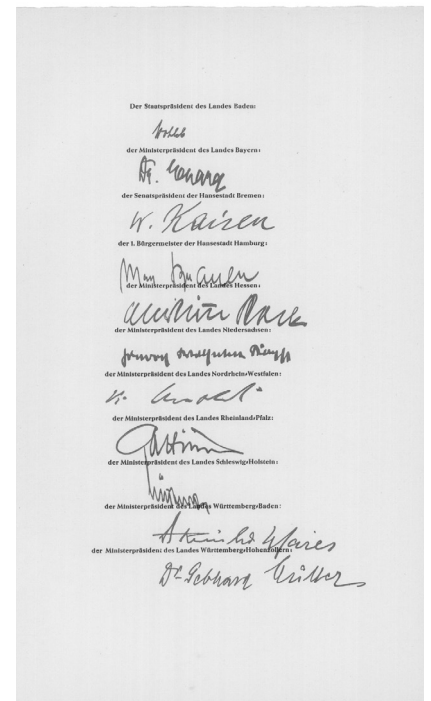 Der Staatspräsident des Landes Baden:
Wohleb
der Ministerpräsident des Landes Bayern:
Dr. Ehard
der Senatspräsident der Hansestadt Bremen:
W. Kaisen
der I. Bürgermeister der Hansestadt Hamburg:
Max Brauer
der Ministerpräsident des Landes Hessen:
Christian Stock
der Ministerpräsident des Landes Niedersachsen:
Hinrich Wilhelm Kopf
der Ministerpräsident des Landes Nordrhein-Westfalen:
K. Arnold
der Ministerpräsident des Landes Rheinland-Pfalz:
Altmeier
der Ministerpräsident des Landes Schleswig-Holstein:
Lüdemann
der Ministerpräsident des Landes Württemberg-Baden:
der Ministerpräsident des Landes Württemberg-Hohenzollern:
Dr. Gebhard Müller